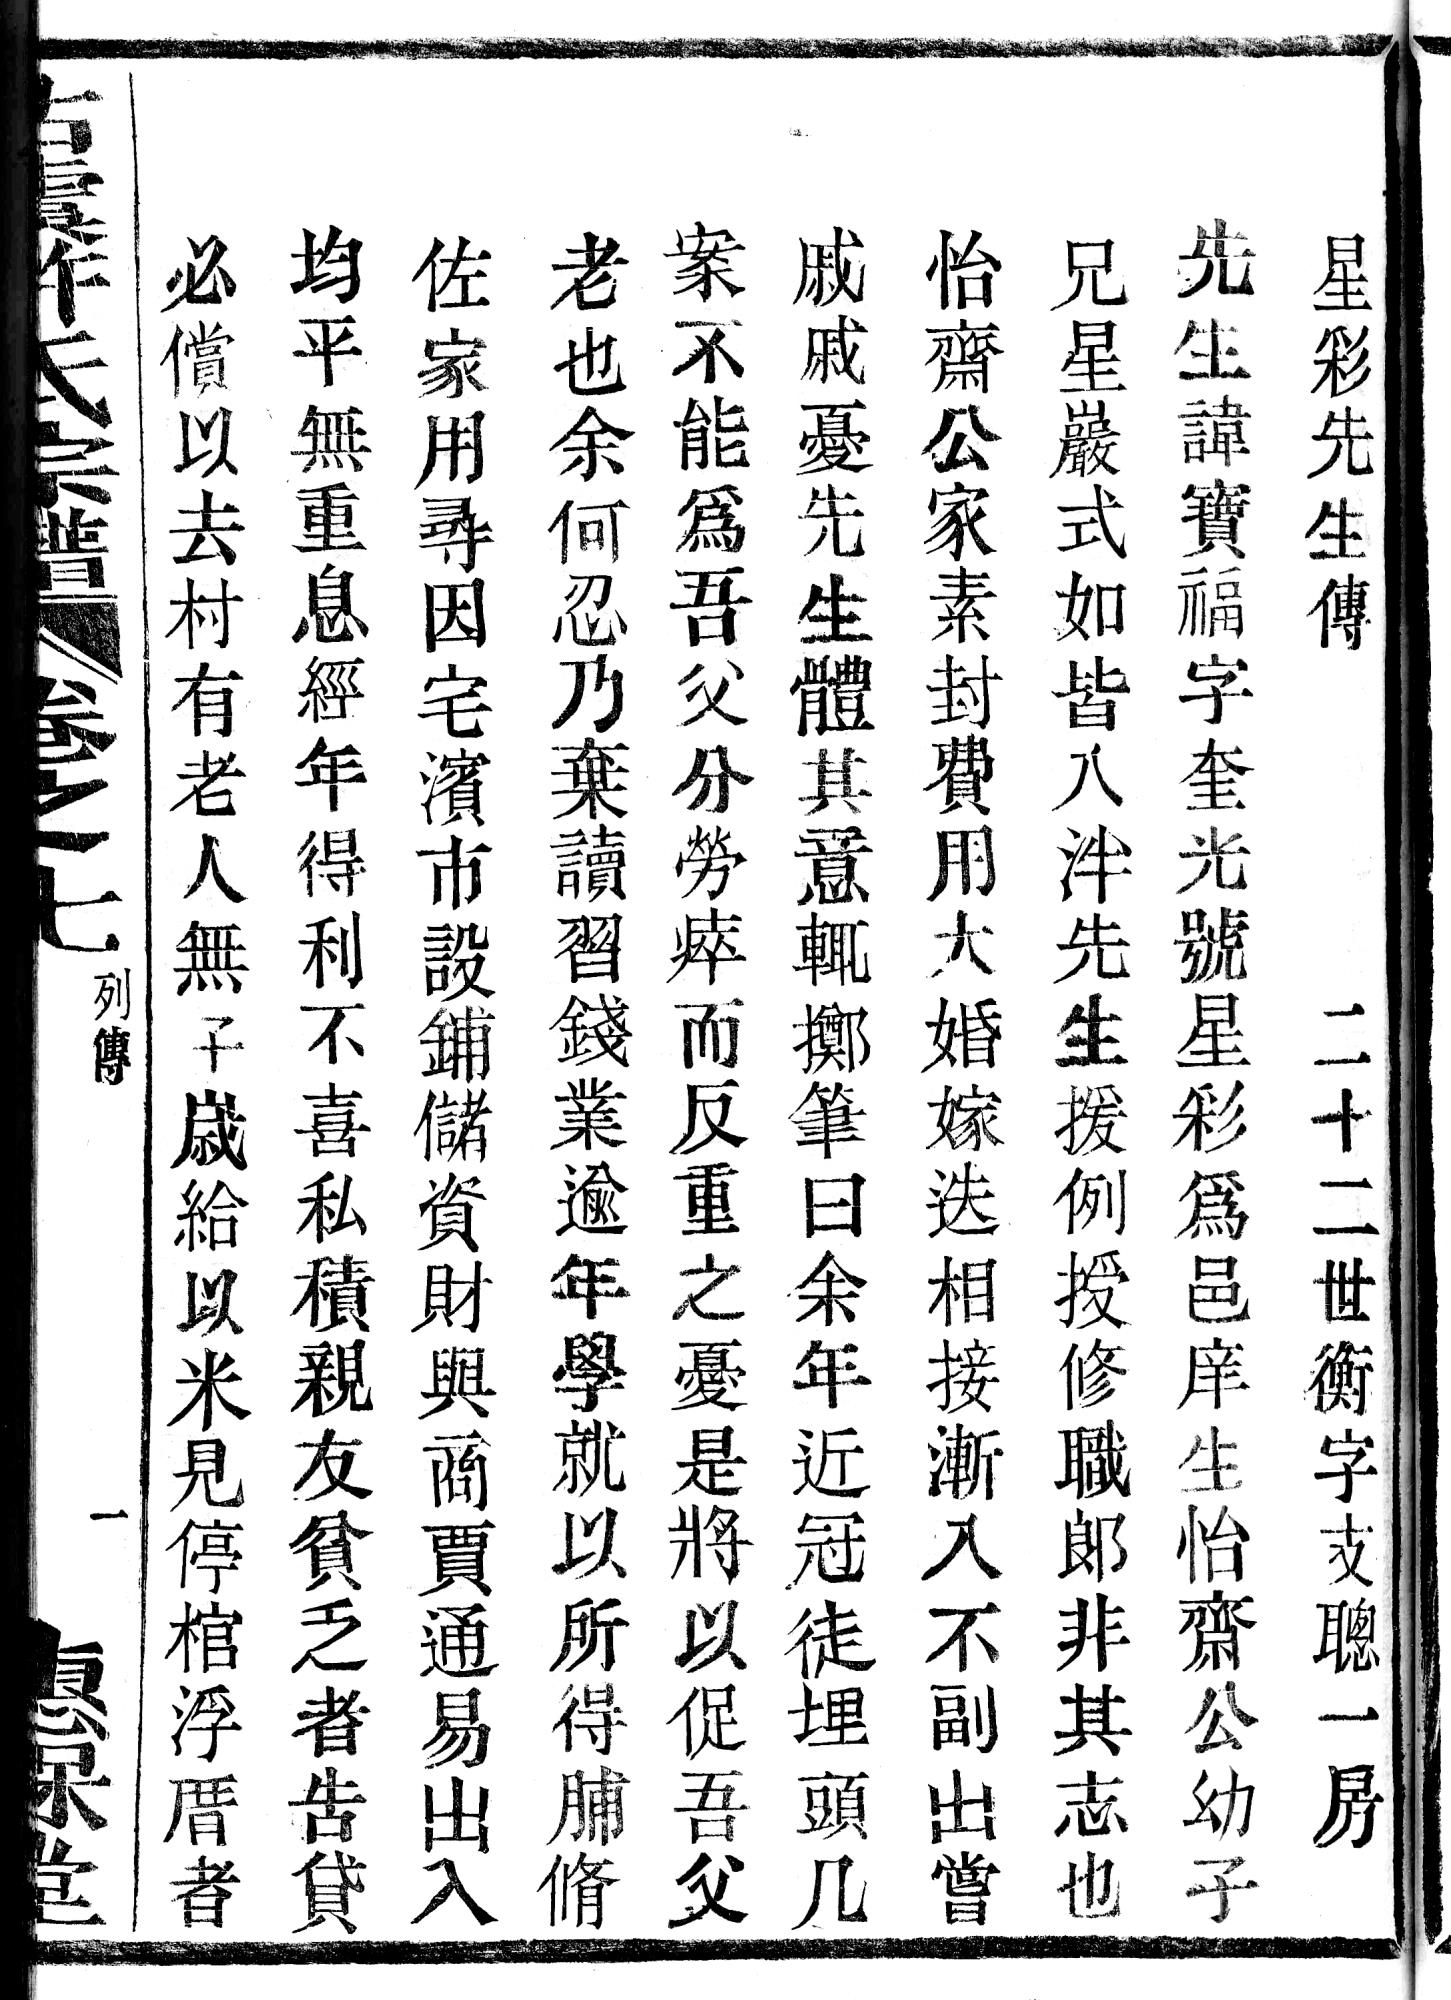 星彩先生傳　二十二世衡字支聰一房
先生諱寶福字奎光號星彩爲邑庠生怡齋公幼子
兄星巖式如皆入泮先生援例授修職郎非其志也
怡齋公家素封費用大婚嫁迭相接漸入不副出嘗
戚戚憂先生體其意輒擲筆曰余年近冠徒埋頭几
案不能爲吾父分勞瘁而反重之憂是將以促吾父
老也余何忍乃棄讀習錢業逾年學就以所得脯脩
佐家用尋因宅濱市設鋪儲資財與商賈通易出入
均平無重息經年得利不喜私積親友貧乏者告貸
必償以去村有老人無子歲給以米見停棺浮厝者
氏宗譜 卷之七 列傳 一 惠保堂